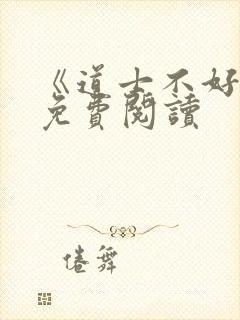 《道士不好
免費閱讀
倦舞